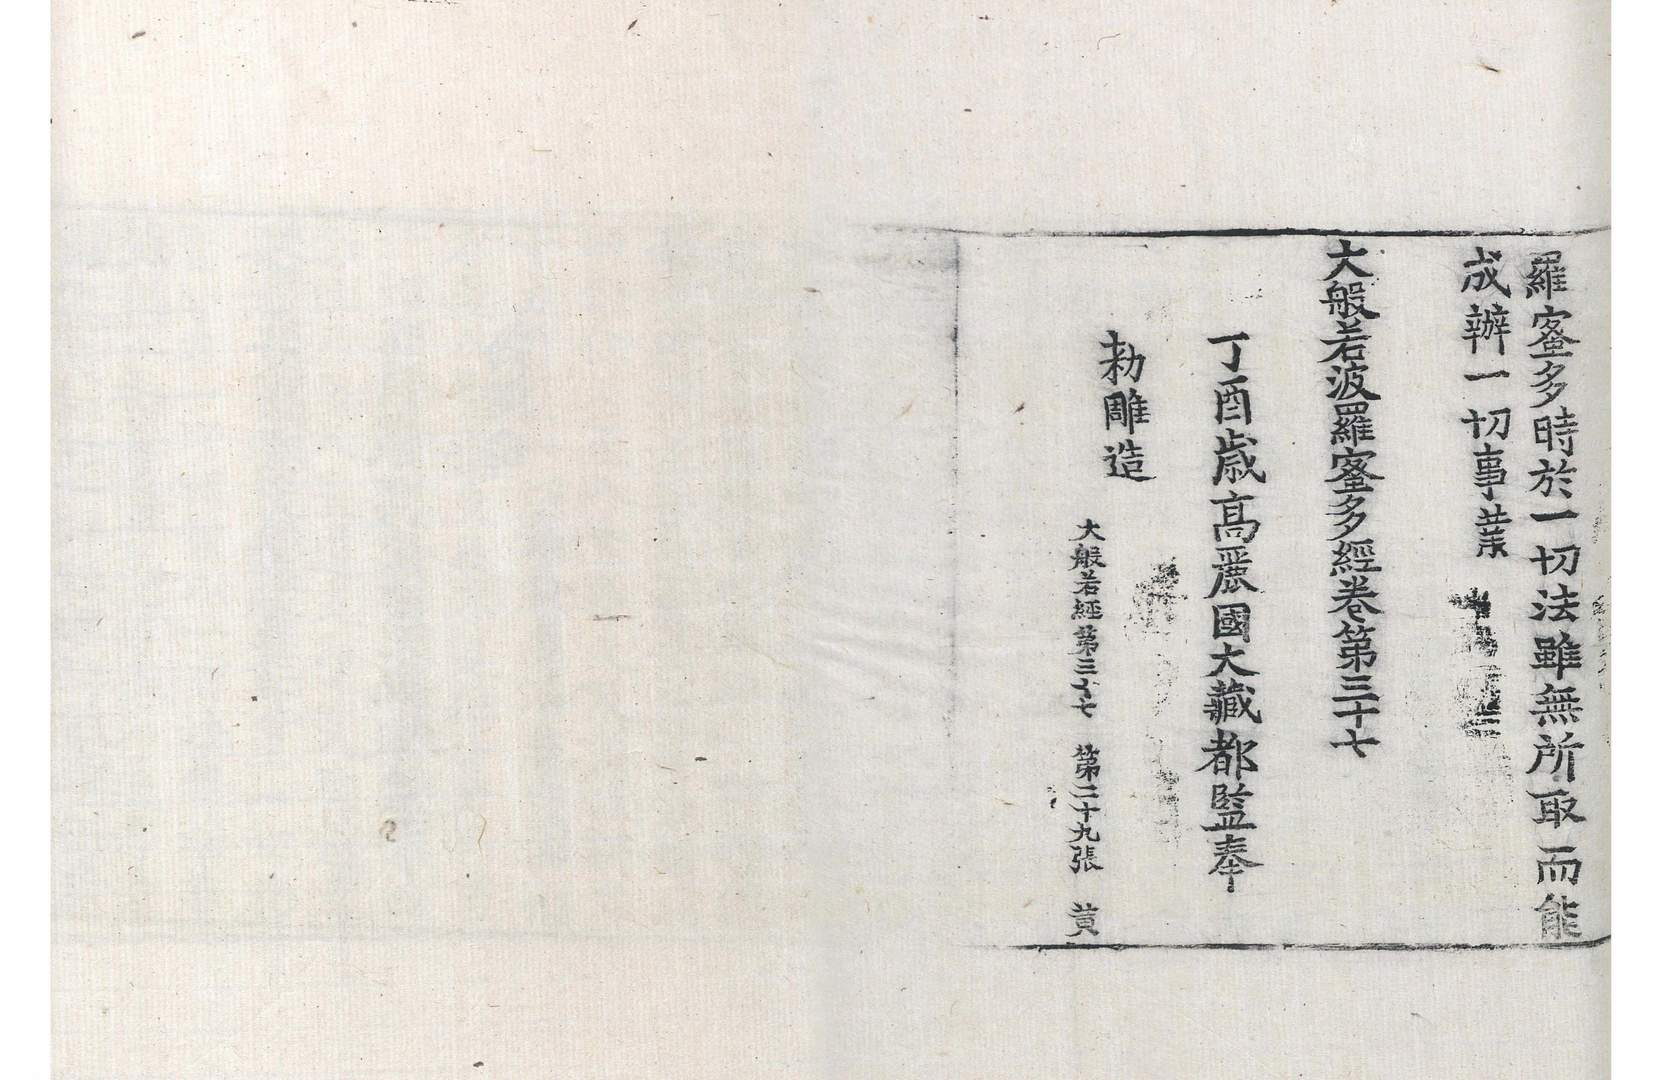 羅蜜多時於一切法雖無所取而能
成辦一切事業
大般若波羅蜜多經卷第三十七
丁酉歲高麗國大藏都監奉
勅雕造
大般若經第三十七 第二十九張 黃